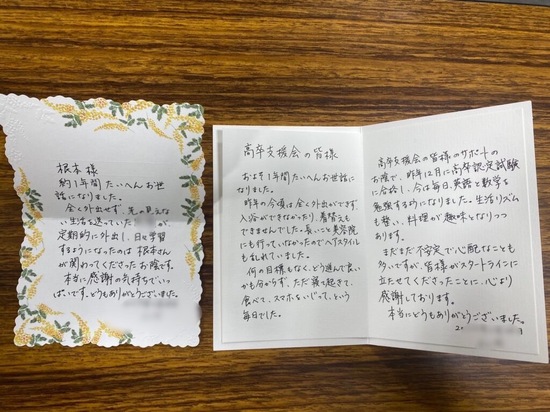 根本様
約1年間たいへんお世話
になりました。
全く外出せず、先の見えな
い生活を送っていた が、
定期的に外出し、日々学習
するようになったのは根本さ
んが関わってくださったお陰です。
本当に感謝の気持ちでいっ
ぱいです。どうもありがとうございました。
高卒支援会の皆様
およそ1年間たいへんお世話に
なりました。
昨年の今頃は全く外出ができず、
入浴ができなかったり、着替えも
できませんでした。長いこと美容院
にも行っていなかったのでヘアスタイル
も乱れていました。
何の目標もなく、どう進んで良い
かも分からず、ただ寝て起きて、
食べて、スマホをいじって、という
毎日でした。
高卒支援会の皆様のサポートの
お陰で、昨年12月に高卒認定試験
に合格し、今は毎日、英語と数学を
勉強するようになりました。生活リズム
も整い、料理が趣味となりつつ
あります。
まだまだ不安定で心配なことも
多いですが、皆様がスタートラインに
立たせてくださったことに、心より
感謝しております。
本当にどうもありがとうございました。